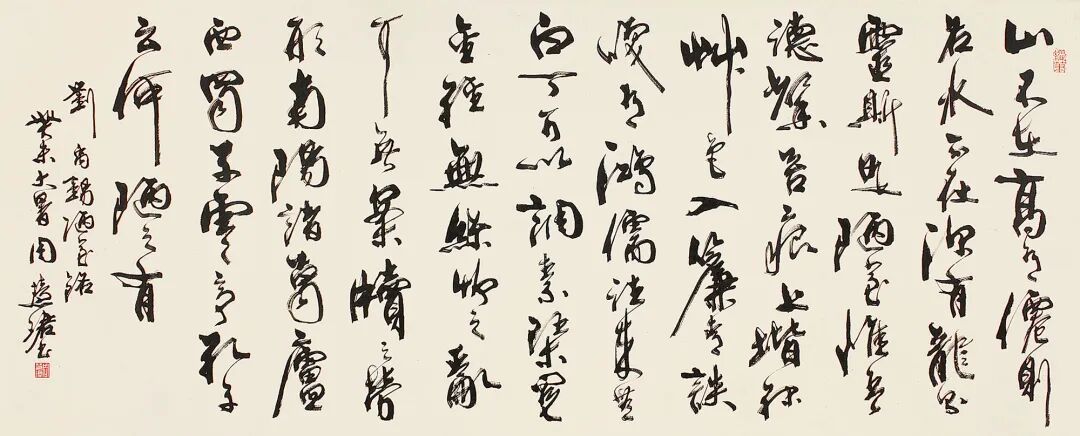 山不在高有僊則
名水不在深有龍則
靈斯是陋室惟吾
德馨苔痕上堦緑
艸色入簾青談
咲有鴻儒往來無
白丁可以調素琴閲
金經無絲竹之亂
耳無案牘之勞
形南陽諸葛廬
西蜀子雲亭孔子
云何陋之有
劉禹錫陋室銘
癸未大暑周慧珺書